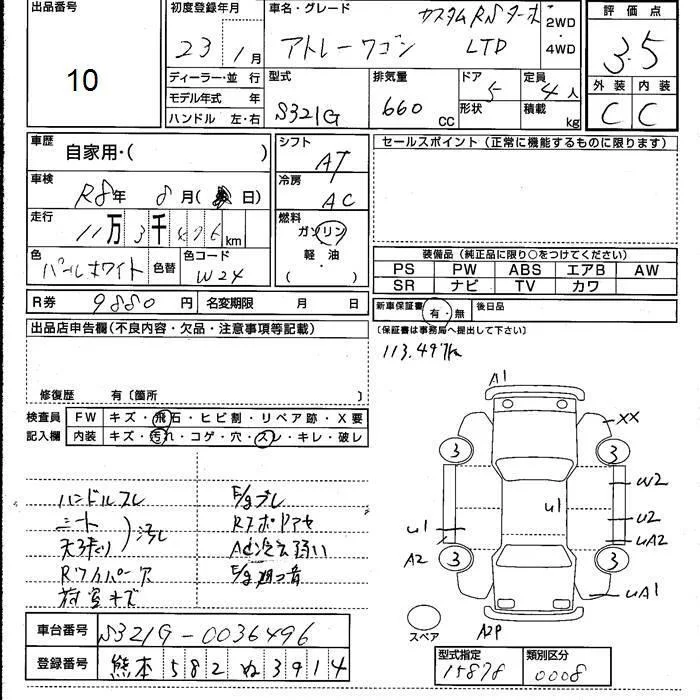 出品番号
10
初度登録年月
23年 1月
車名・グレード
カスタムRSターボ
アトレーワゴン LTD
2WD
4WD
評価点
3.5
外装 内装
C C
ディーラー・並行
モデル年式 年
ハンドル 左・右
型式
S321G
排気量
660 CC
ドア
5
形状
定員
4人
積載
kg
車歴
自家用・( )
車検
R8年 8月( 日)
走行
11万3千496km
色
パールホワイト
色替
色コード
W24
シフト
AT
冷房
AC
燃料
ガソリン
軽・油
( )
セールスポイント(正常に機能するものに限ります)
装備品(純正品に限り○をつけてください)
PS PW ABS エアB AW
SR ナビ TV カワ
R券 9880円 名変期限 月 日
新車保証書 有・無 後日品
(保証書は事務局へ提出して下さい)
出品店申告欄(不良内容・欠品・注意事項等記載)
113.497km
修復歴 有〔箇所 〕
検査員
記入欄
FW キズ・飛石・ヒビ割・リペア跡・X要
内装 キズ・汚れ・コゲ・穴・スレ・キレ・破レ
ハンドルスレ
シート
天張り
汚れ
Rワイパー欠
荷室キズ
E/gブレ
AC冷え弱い
A1
XX
3
3
W2
U1
U1
U2
UA2
A2
3
3
UA1
スペア
A2P
車台番号 S321G-0036496
登録番号 熊本582ぬ3914
型式指定
15878
類別区分
0008